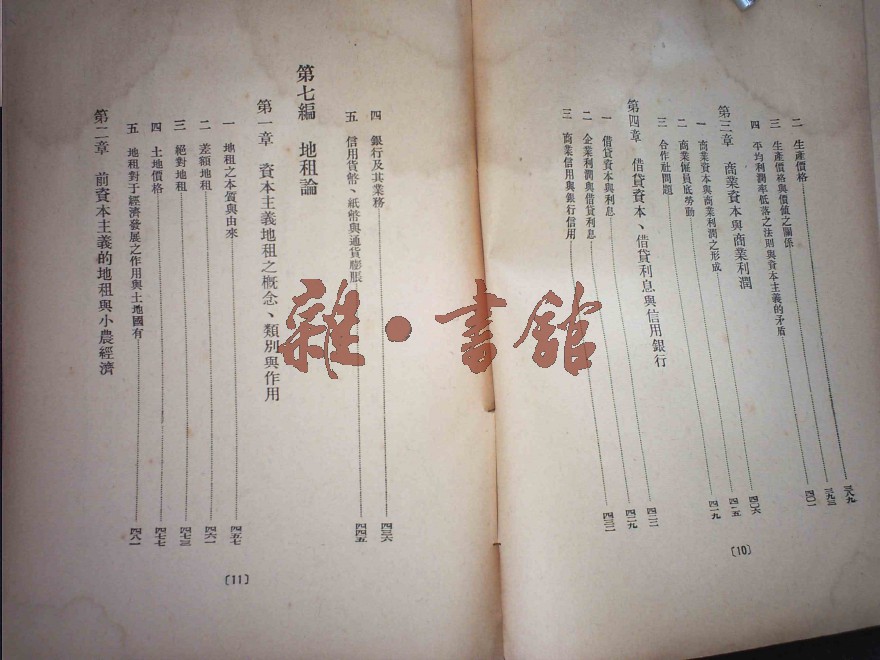 二 生產價格 三八九
三 生產價格與價值之關係 三九三
四 平均利潤率低落之法則與資本主義的矛盾 四〇一
第三章 商業資本與商業利潤
一 商業資本與商業利潤之形成 四〇六
二 商業僱員底勞動 四一五
三 合作社問題 四一九
第四章 借貸資本、借貸利息與信用銀行
一 借貸資本與利息 四二一
二 企業利潤與借貸利息 四二九
三 商業信用與銀行信用 四三二
〔10〕
四 銀行及其業務 四三六
五 信用貨幣、紙幣與通貨膨脹 四四五
第七編 地租論
第一章 資本主義地租之概念、類別與作用
一 地租之本質與由來 四五七
二 差額地租 四六一
三 絕對地租 四七三
四 土地價格 四七七
五 地租對于經濟發展之作用與土地國有 四八一
第二章 前資本主義的地租與小農經濟
〔11〕
雜·書館